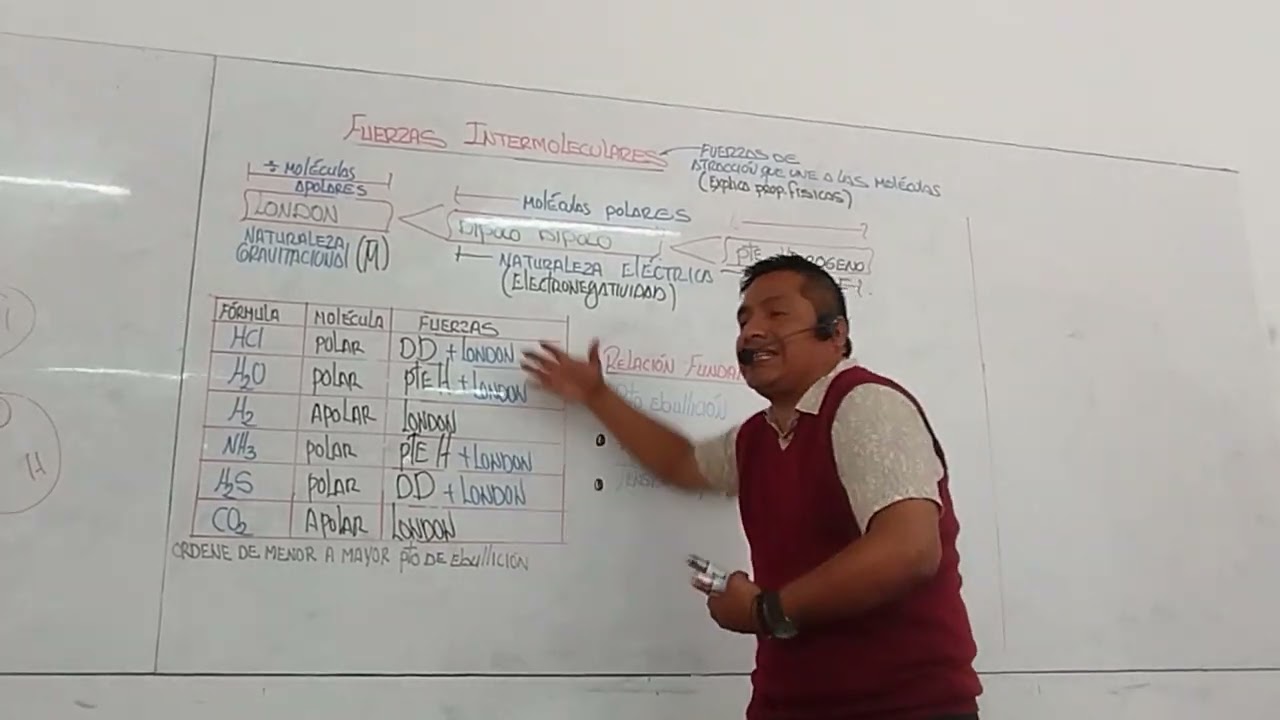 FUERZAS INTERMOLECULARES
FUERZAS DE
ATRACCIÓN QUE UNE A LAS MOLÉCULAS
(Explica prop. físicas)
÷ MOLÉCULAS
APOLARES
LONDON
NATURALEZA
GRAVITACIONAL (M̄)
MOLÉCULAS POLARES
DIPOLO DIPOLO
NATURALEZA ELÉCTRICA
(ELECTRONEGATIVIDAD)
PTE
FÓRMULA MOLÉCULA FUERZAS
HCl POLAR DD + LONDON
H₂O POLAR PTE H + LONDON
H₂ APOLAR LONDON
NH₃ POLAR PTE H + LONDON
H₂S POLAR DD + LONDON
CO₂ APOLAR LONDON
ORDENE DE MENOR A MAYOR pto DE EbullICIÓN
RELACIÓN
pto EbullICIÓN
H